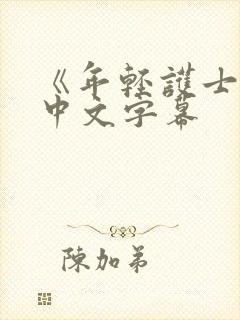 《年輕護士
中文字幕
陳加弟